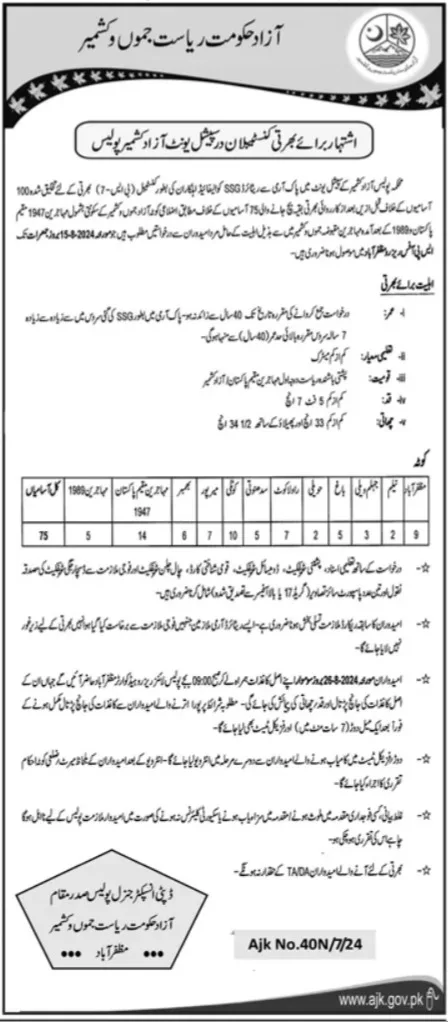 آزاد حکومت ریاست جموں و کشمیر
اشتہار برائے بھرتی کنسٹیبلان در سپیشل یونٹ آزاد کشمیر پولیس
محکمہ پولیس آزاد کشمیر کے سپیشل یونٹ میں پاک آرمی سے ریٹائرڈ SSG کوالیفائیڈ اہلکاران کی بطور کنسٹیبل (بی ایس-7) بھرتی کے لئے تخلیق شدہ 100
آسامیوں کے خلاف قبل ازیں بعد از کارروائی بھرتی بقیہ بچ جانے والی 75 آسامیوں کے خلاف مطابق اضلاعی کوٹہ آزاد جموں و کشمیر کے سکونتی بشمول مہاجرین 1947 مقیم
پاکستان و 1989 کے بعد آمدہ مہاجرین مقبوضہ جموں و کشمیر میں سے بذیل اہلیت کے حامل مرد امیدواران سے درخواستیں مطلوب ہیں جو مورخہ 15-8-2024 بروز جمعرات تک
ایس پی آفس ریزرو مظفرآباد میں موصول ہونا ضروری ہیں۔
اہلیت برائے بھرتی
i- عمر: درخواست جمع کروانے کی مقررہ تاریخ تک 40 سال سے زائد نہ ہو۔ پاک آرمی میں بطور SSG کی گئی سروس میں سے زیادہ سے زیادہ
7 سالہ سروس مقررہ بالائی حد عمر (40 سال) سے منہا ہوگی۔
ii- تعلیمی معیار: کم از کم میٹرک
iii- قومیت: پشتنی باشندہ ریاست درجہ اول مہاجرین مقیم پاکستان / آزاد کشمیر
iv- قد: کم از کم 5 فٹ 7 انچ
v- چھاتی: کم از کم 33 انچ اور پھیلاؤ کے ساتھ 34 1/2 انچ
کوٹہ
مظفرآباد نیلم جہلم ویلی باغ حویلی راولاکوٹ سدھنوتی کوٹلی میرپور بھمبر مہاجرین مقیم پاکستان 1947 مہاجرین 1989 کل آسامیاں
9 2 3 5 2 7 5 10 7 6 14 5 75
☆- درخواست کے ساتھ تعلیمی اسناد، پشتنی سرٹیفکیٹ، ڈومیسائل سرٹیفکیٹ، قومی شناختی کارڈ، چال چلن سرٹیفکیٹ اور فوجی ملازمت سے ڈسچارج سرٹیفکیٹ کی مصدقہ
نقول اور تین عدد پاسپورٹ سائز تصاویر (گریڈ 17 یا بالا آفیسر سے تصدیق شدہ) شامل کرنا ضروری ہیں۔
☆- امیدواران کا سابقہ ریکارڈ ملازمت تسلی بخش ہونا ضروری ہے۔ ایسے ریٹائرڈ آرمی ملازمین جنہیں فوجی ملازمت سے برخاست کیا گیا ہو انہیں بھرتی کے لیے زیر غور
نہیں لایا جائے گا۔
☆- امیدواران مورخہ 26-8-2024 بروز سوموار اپنے اصل کاغذات ہمراہ لے کر صبح 09:00 بجے پولیس لائنز ریزرو ہیڈ کوارٹرز مظفرآباد حاضر آئیں گے جہاں ان کے
اصل کاغذات کی جانچ پڑتال اور قد و چھاتی کی پیمائش کی جائے گی۔ مطلوبہ شرائط پر پورا اترنے والے امیدواران سے کاغذات کی جانچ پڑتال مکمل ہونے کے
فوراً بعد ایک میل دوڑ (7 سات منٹ میں) اور فزیکل ٹیسٹ بھی لیا جائے گا۔
☆- دوڑ و فزیکل ٹیسٹ میں کامیاب ہونے والے امیدواران سے دوسرے مرحلہ میں انٹرویو لیا جائے گا۔ انٹرویو کے بعد امیدواران کے مطابق میرٹ و ضلعی کوٹہ احکام
تقرری کا اجراء کیا جائے گا۔
☆- غلط بیانی، کسی فوجداری مقدمہ میں ملوث ہونے / مقدمہ میں سزایاب ہونے یا سیکیورٹی کلیئرنس نہ ہونے کی صورت میں امیدوار ملازمت پولیس کے لیے نااہل ہوگا
چاہے اس کی تقرری ہو چکی ہو۔
☆- بھرتی کے لئے آنے والے امیدواران TA/DA کے حقدار نہ ہونگے۔
ڈپٹی انسپکٹر جنرل پولیس صدر مقام
آزاد حکومت ریاست جموں و کشمیر
مظفرآباد
Ajk No.40N/7/24
www.ajk.gov.pk